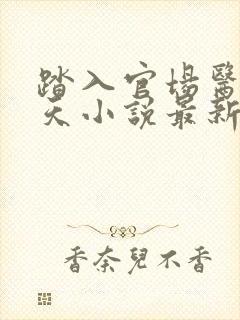 踏入官場醫
天小說最新
香奈兒不香